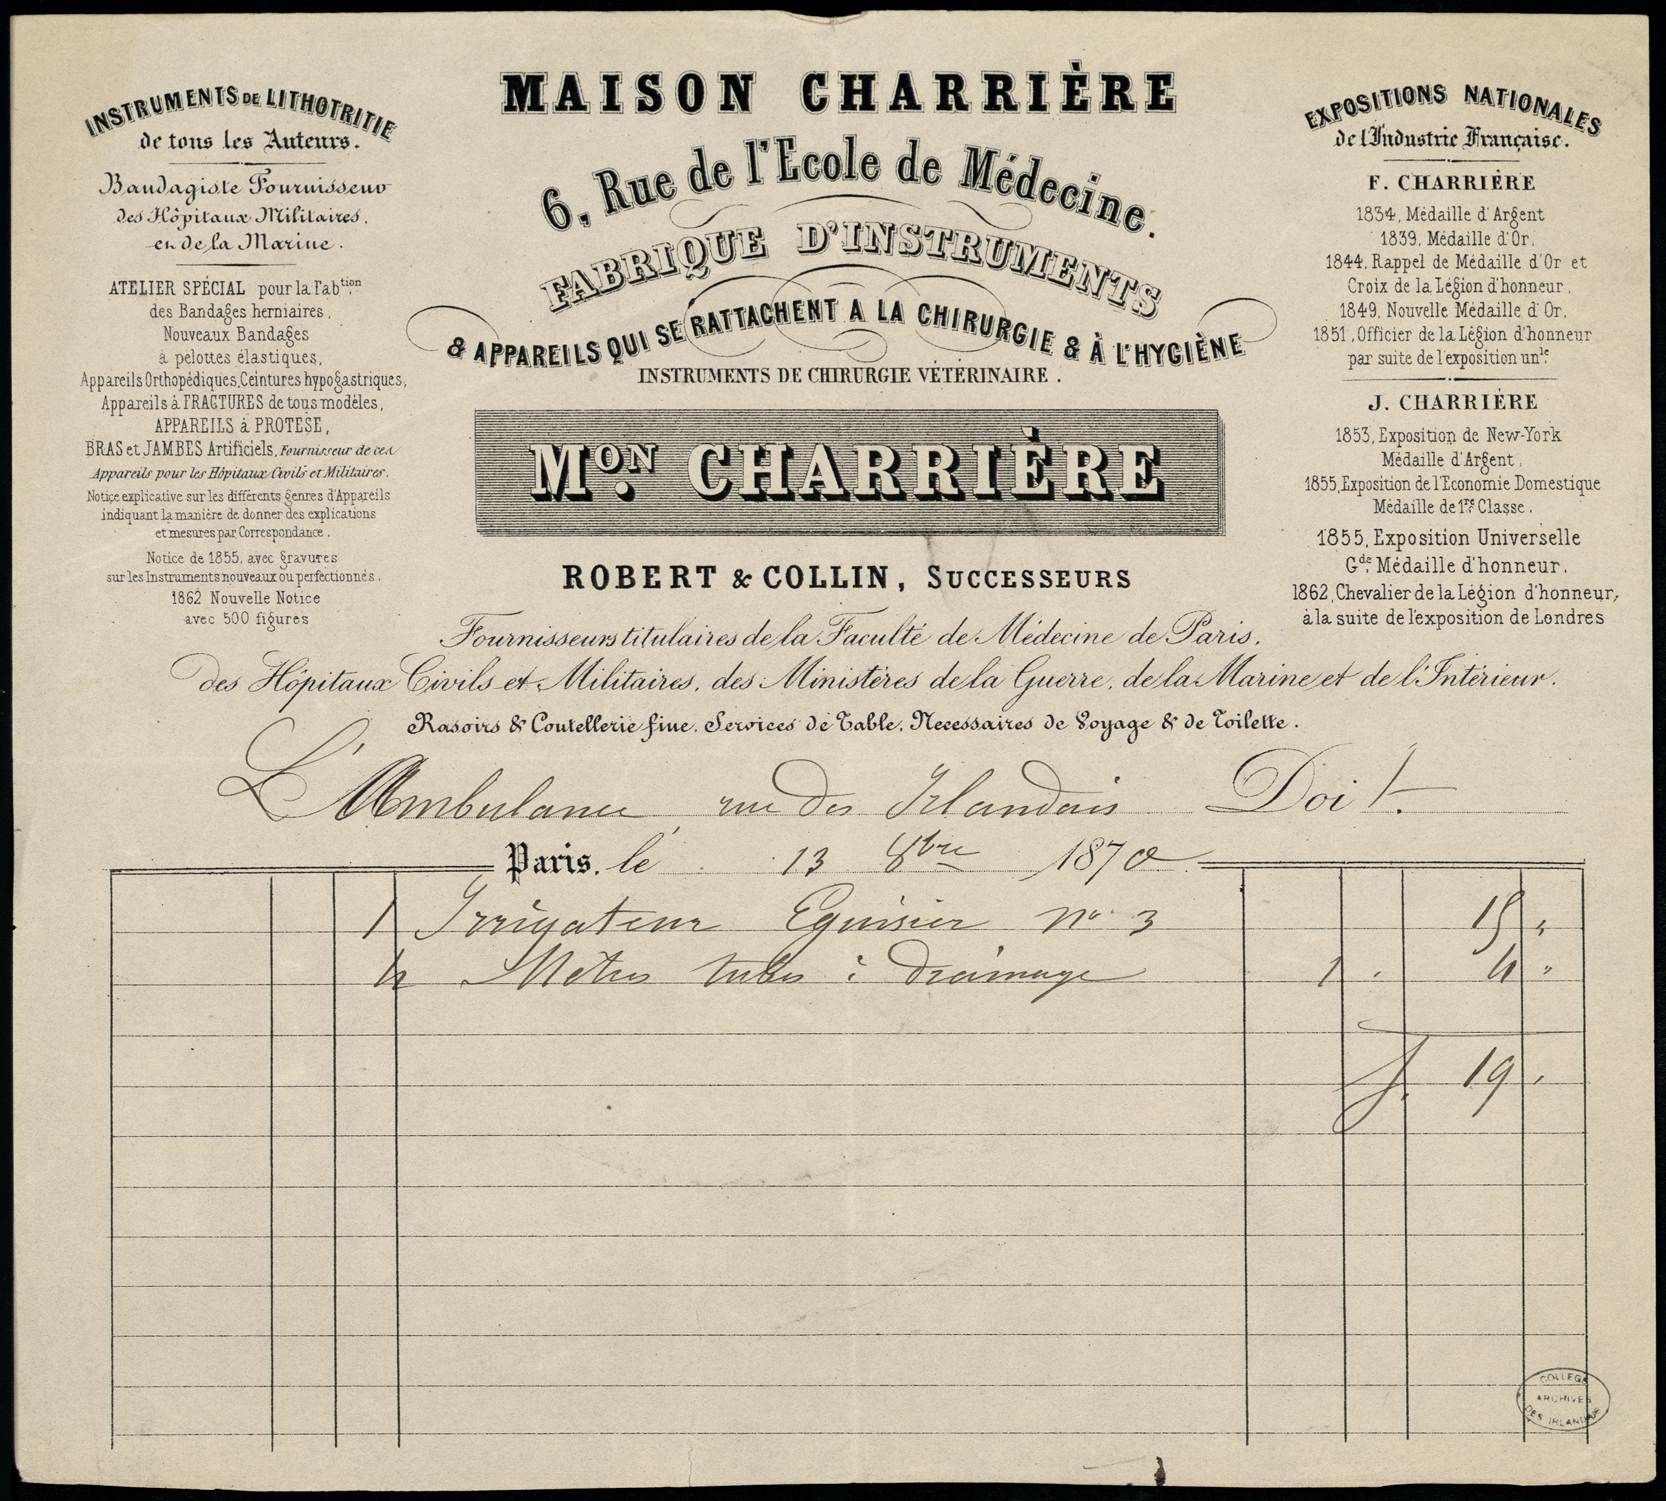 INSTRUMENTS DE LITHOTRITIE
de tous les Auteurs.
Bandagiste Fournisseur
des Hôpitaux Militaires,
et de la Marine.
ATELIER SPÉCIAL pour la Fabtion
des Bandages herniaires,
Nouveaux Bandages
à pelottes élastiques,
Appareils Orthopédiques, Ceintures hypogastriques,
Appareils à FRACTURES de tous modèles,
APPAREILS à PROTESE,
BRAS et JAMBES Artificiels, Fournisseur de ces
Appareils pour les Hôpitaux Civils et Militaires.
Notice explicative sur les différents genres d'Appareils
indiquant la manière de donner des explications
et mesures par Correspondance.
Notice de 1855, avec gravures
sur les Instruments nouveaux ou perfectionnés.
1862 Nouvelle Notice
avec 500 figures
MAISON CHARRIÈRE
6, Rue de l'Ecole de Médecine.
FABRIQUE D'INSTRUMENTS
& APPAREILS QUI SE RATTACHENT A LA CHIRURGIE & À L'HYGIÈNE
INSTRUMENTS DE CHIRURGIE VÉTÉRINAIRE.
MON. CHARRIÈRE
ROBERT & COLLIN, SUCCESSEURS
EXPOSITIONS NATIONALES
de l'Industrie Française.
F. CHARRIÈRE
1834, Médaille d'Argent
1839, Médaille d'Or,
1844, Rappel de Médaille d'Or et
Croix de la Légion d'honneur,
1849, Nouvelle Médaille d'Or,
1851, Officier de la Légion d'honneur
par suite de l'exposition unle.
J. CHARRIÈRE
1853, Exposition de New-York
Médaille d'Argent,
1855, Exposition de l'Economie Domestique
Médaille de 1re Classe.
1855, Exposition Universelle
Gde. Médaille d'honneur.
1862, Chevalier de la Légion d'honneur,
à la suite de l'exposition de Londres
Fournisseurs titulaires de la Faculté de Médecine de Paris,
des Hôpitaux Civils et Militaires, des Ministères de la Guerre, de la Marine et de l'Intérieur.
Rasoirs & Coutellerie fine, Services de Table, Necessaires de Voyage & de Toilette.
L'Ambulance rue des Irlandais Doit.
Paris, le 13 8bre 1870
1 Irrigateur Eguisier No 3 15 "
4 Mètres tubes à drainage 1 . 4 "
f. 19 "
COLLEGE
ARCHIVES
DES IRLANDAIS